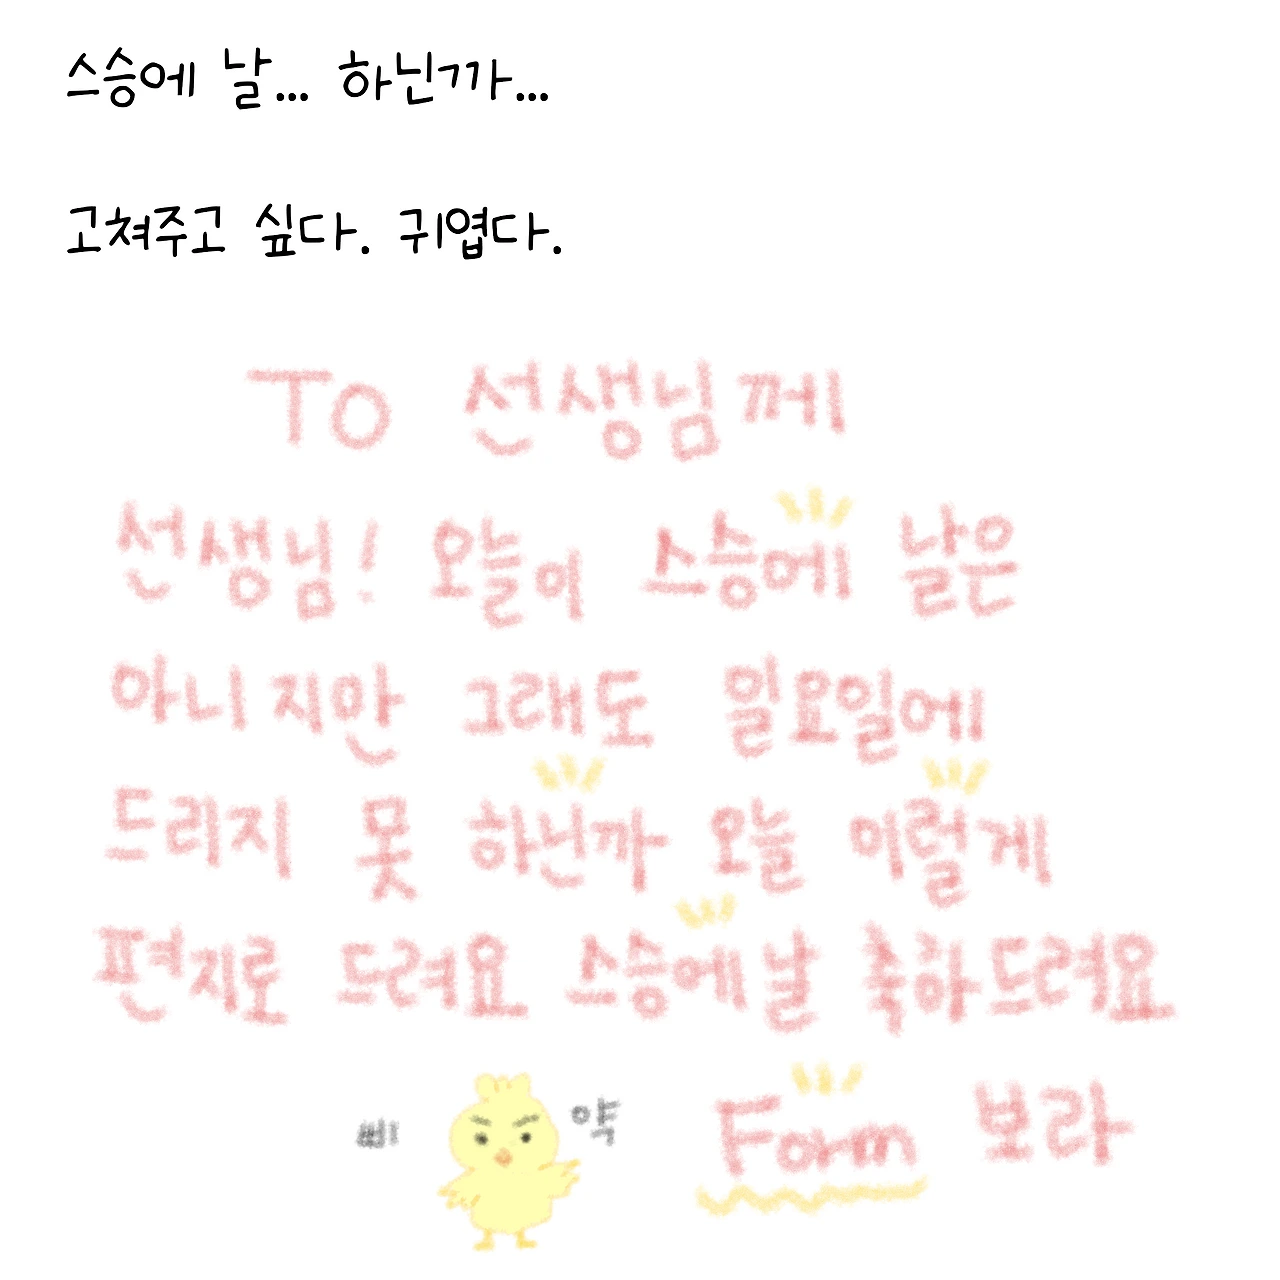 스승에 날... 하닌까...
고쳐주고 싶다. 귀엽다.
TO 선생님께
선생님! 오늘이 스승에 날은
아니지만 그래도 일요일에
드리지 못 하닌까 오늘 이렇게
편지로 드려요 스승에날 축하드려요
삐 약 Form 보라